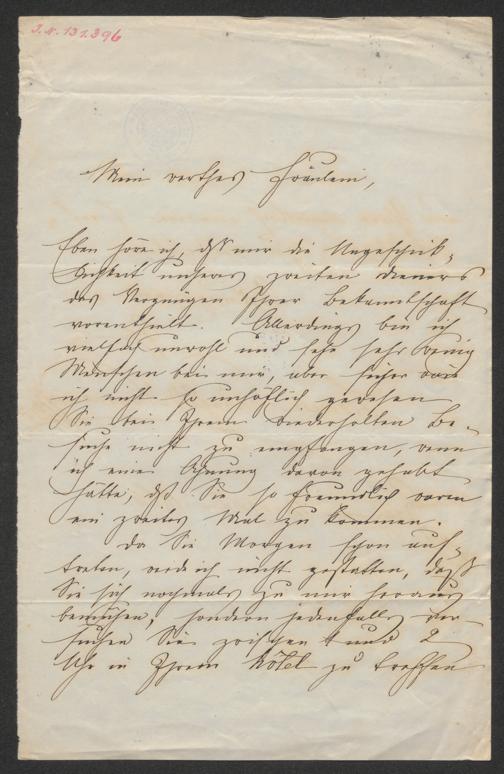 J.N. 131.396
Mein werthes Fräulein,
Eben höre ich, dß mir die Ungeschick-
lichkeit unseres zweiten Dieners
das Vergnügen Ihrer Bekanntschaft
vorenthielt. Allerdings bin ich
vielfach unwohl und sehe sehr wenig
Menschen bei mir, aber sicher wäre
ich nicht so unhöflich gewesen
Sie bei Ihrem wiederholten Be-
suche nicht zu empfangen, wenn
ich eine Ahnung davon gehabt
hätte, dß Sie so freundlich waren
ein zweites Mal zu kommen.
Da Sie Morgen schon auf-
treten, werde ich nicht gestatten, daß
Sie sich nochmals zu mir heraus
bemühen, sondern jedenfalls ver-
suchen Sie zwischen 1 und 2
Uhr in Ihrem Hôtel zu treffen